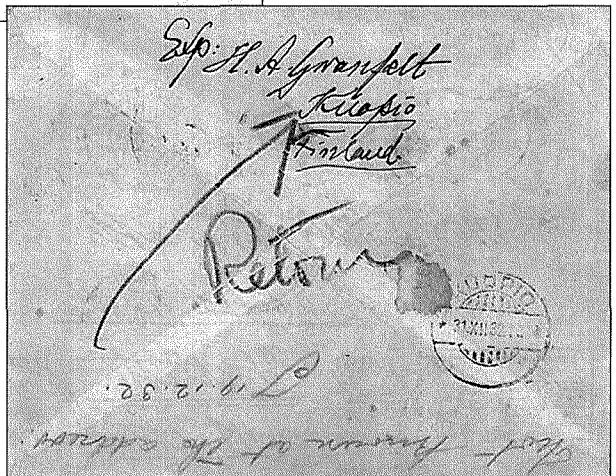 Exp: H. A. Granfelt
Kuopio
Finland.
Retour
KUOPIO
31.XII.32
19.12.32.
Not known at the address.